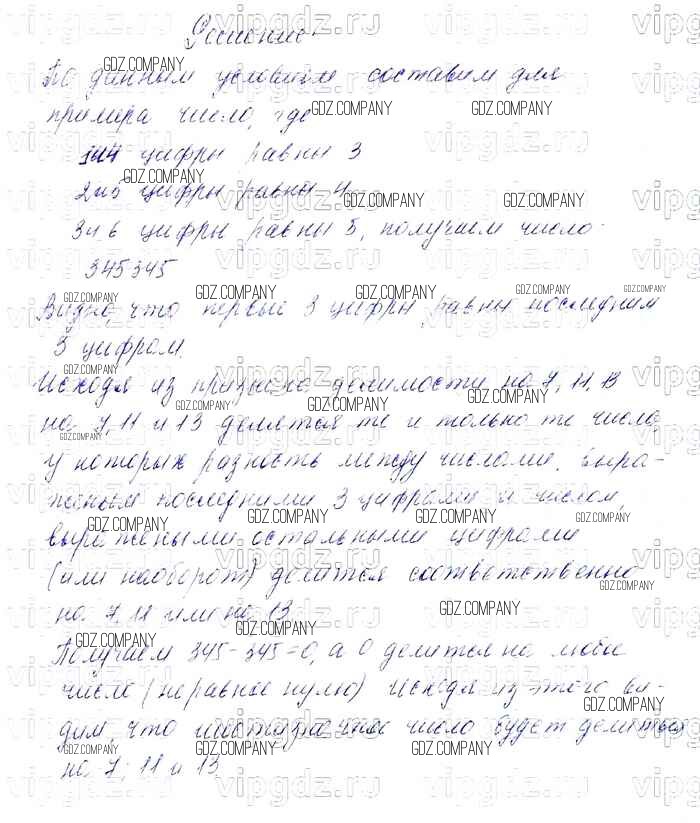 Решение.
По данным условиям составим для
примера число, где
1и4 цифры равны 3
2и5 цифры равны 4
3и6 цифры равны 5, получаем число
345345
Видно, что первые 3 цифры равны последним
3 цифрам.
Исходя из признака делимости на 7, 11, 13
на 7, 11 и 13 делятся те и только те числа
у которых разность между числами, выра-
женым последними 3 цифрами и числом,
выражеными остальными цифрами
(или наоборот) делится соответственно
на 7, 11 или на 13
Получаем 345-345=0, а 0 делится на любое
число (неравное нулю) Исходя из этого ви-
дим, что шестизначное число будет делиться
на 7, 11 и 13